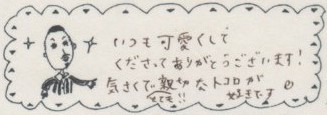 いつも可愛くして
くださってありがとうございます!
気さくで親切なトコロが
とても!! 好きです